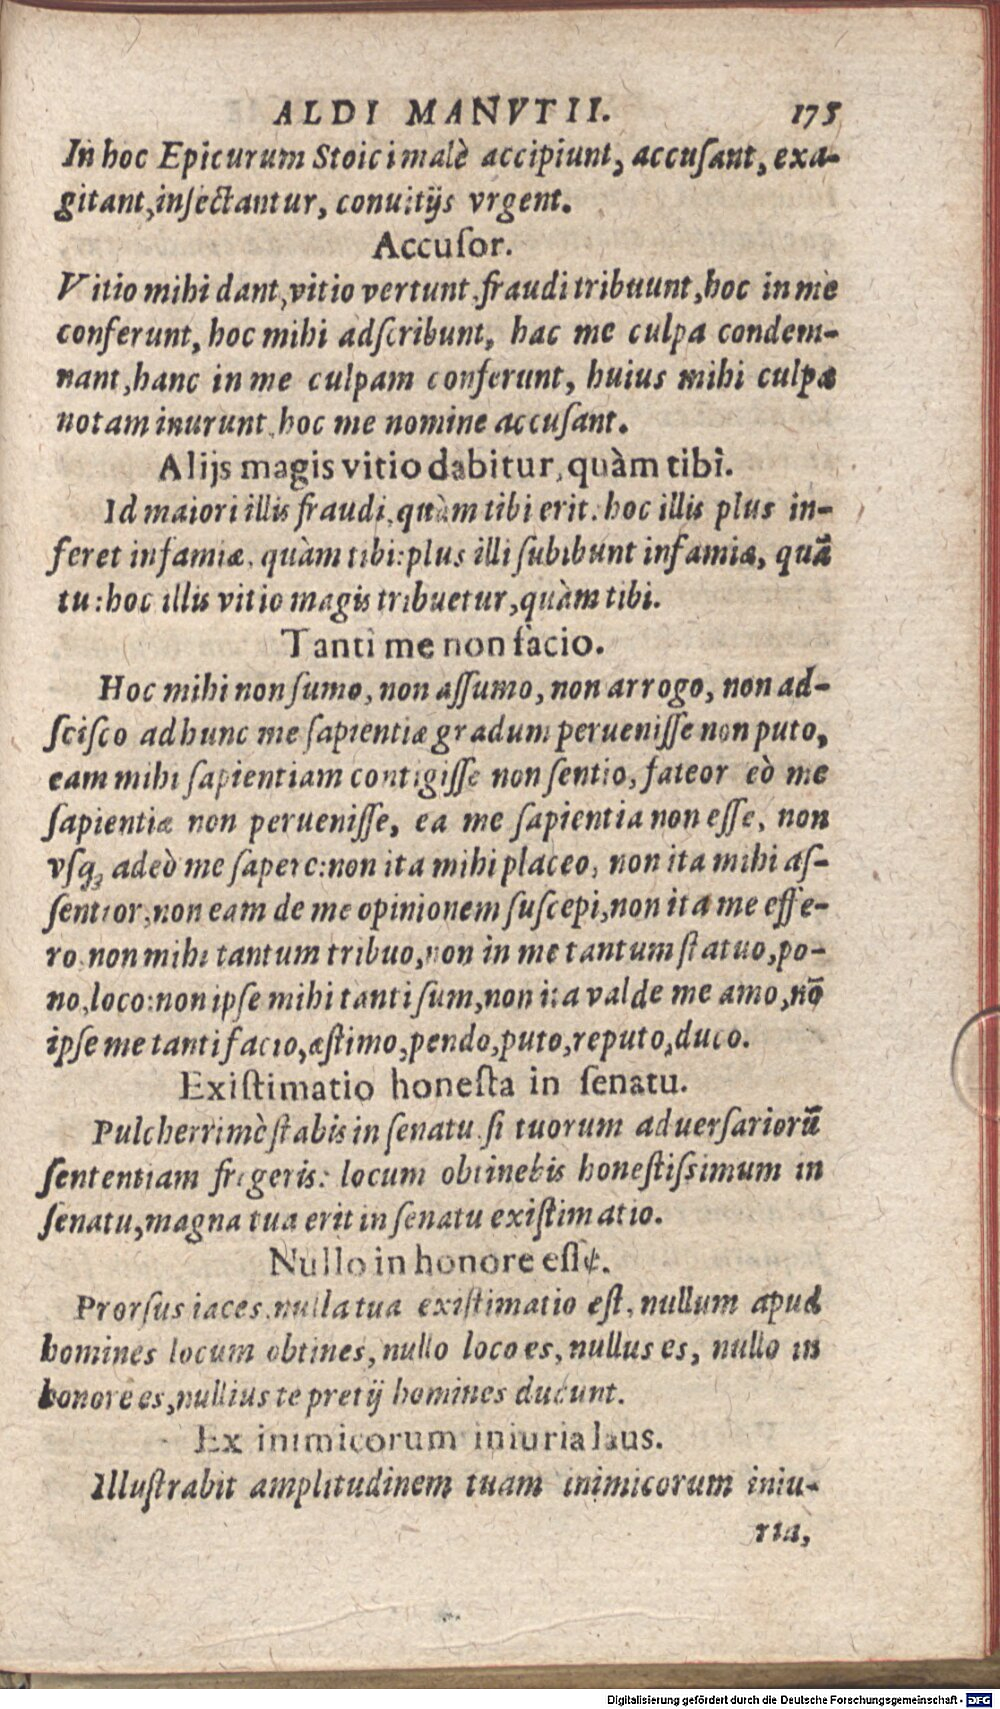 ALDI MANVTII. 175
In hoc Epicurum Stoici malè accipiunt, accuſant, exa-
gitant, inſectantur, conuitijs vrgent.
Accuſor.
Vitio mihi dant, vitio vertunt, fraudi tribuunt, hoc in me
conferunt, hoc mihi adſcribunt, hac me culpa condem-
nant, hanc in me culpam conferunt, huius mihi culpæ
notam inurunt, hoc me nomine accuſant.
Alijs magis vitio dabitur, quàm tibi.
Id maiori illis fraudi, quàm tibi erit. hoc illis plus in-
feret infamiæ, quàm tibi: plus illi ſubibunt infamiæ, quã
tu: hoc illis vitio magis tribuetur, quàm tibi.
Tanti me non facio.
Hoc mihi non ſumo, non aſſumo, non arrogo, non ad-
ſciſco ad hunc me ſapientiæ gradum perueniſſe non puto,
eam mihi ſapientiam contigiſſe non ſentio, fateor eò me
ſapientiæ non perueniſſe, ea me ſapientia non eſſe, non
vſq; adeò me ſapere: non ita mihi placeo, non ita mihi aſ-
ſentior, non eam de me opinionem ſuſcepi, non ita me effe-
ro. non mihi tantum tribuo, non in me tantum ſtatuo, po-
no, loco: non ipſe mihi tanti ſum, non ita valde me amo, nõ
ipſe me tanti facio, æſtimo, pendo, puto, reputo, duco.
Exiſtimatio honeſta in ſenatu.
Pulcherrimè ſtabis in ſenatu, ſi tuorum aduerſariorũ
ſententiam fregeris: locum obtinebis honeſtiſsimum in
ſenatu, magna tua erit in ſenatu exiſtimatio.
Nullo in honore eſſe.
Prorſus iaces, nulla tua exiſtimatio eſt, nullum apud
homines locum obtines, nullo loco es, nullus es, nullo in
honore es, nullius te pretij homines ducunt.
Ex inimicorum iniuria laus.
Illuſtrabit amplitudinem tuam inimicorum iniu-
ria,
Digitalisierung gefördert durch die Deutsche Forschungsgemeinschaft - DFG